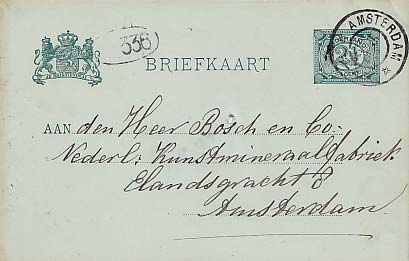 336
AMSTERDAM
BRIEFKAART
AAN den Heer Bosch en Co.
Nederl: Kunstmineraalfabriek
Elandsgracht 8
Amsterdam.